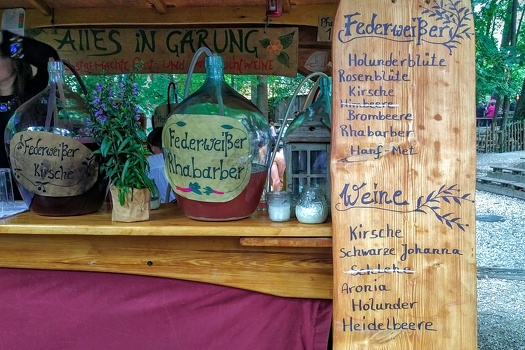 Alles in Gärung
Federweißer
Kirsche
Federweißer
Rhabarber
Federweißer
Holunderblüte
Rosenblüte
Kirsche
Himbeere
Brombeere
Rhabarber
Hanf Met
Weine
Kirsche
Schwarze Johanna
Schlehe
Aronia
Holunder
Heidelbeere